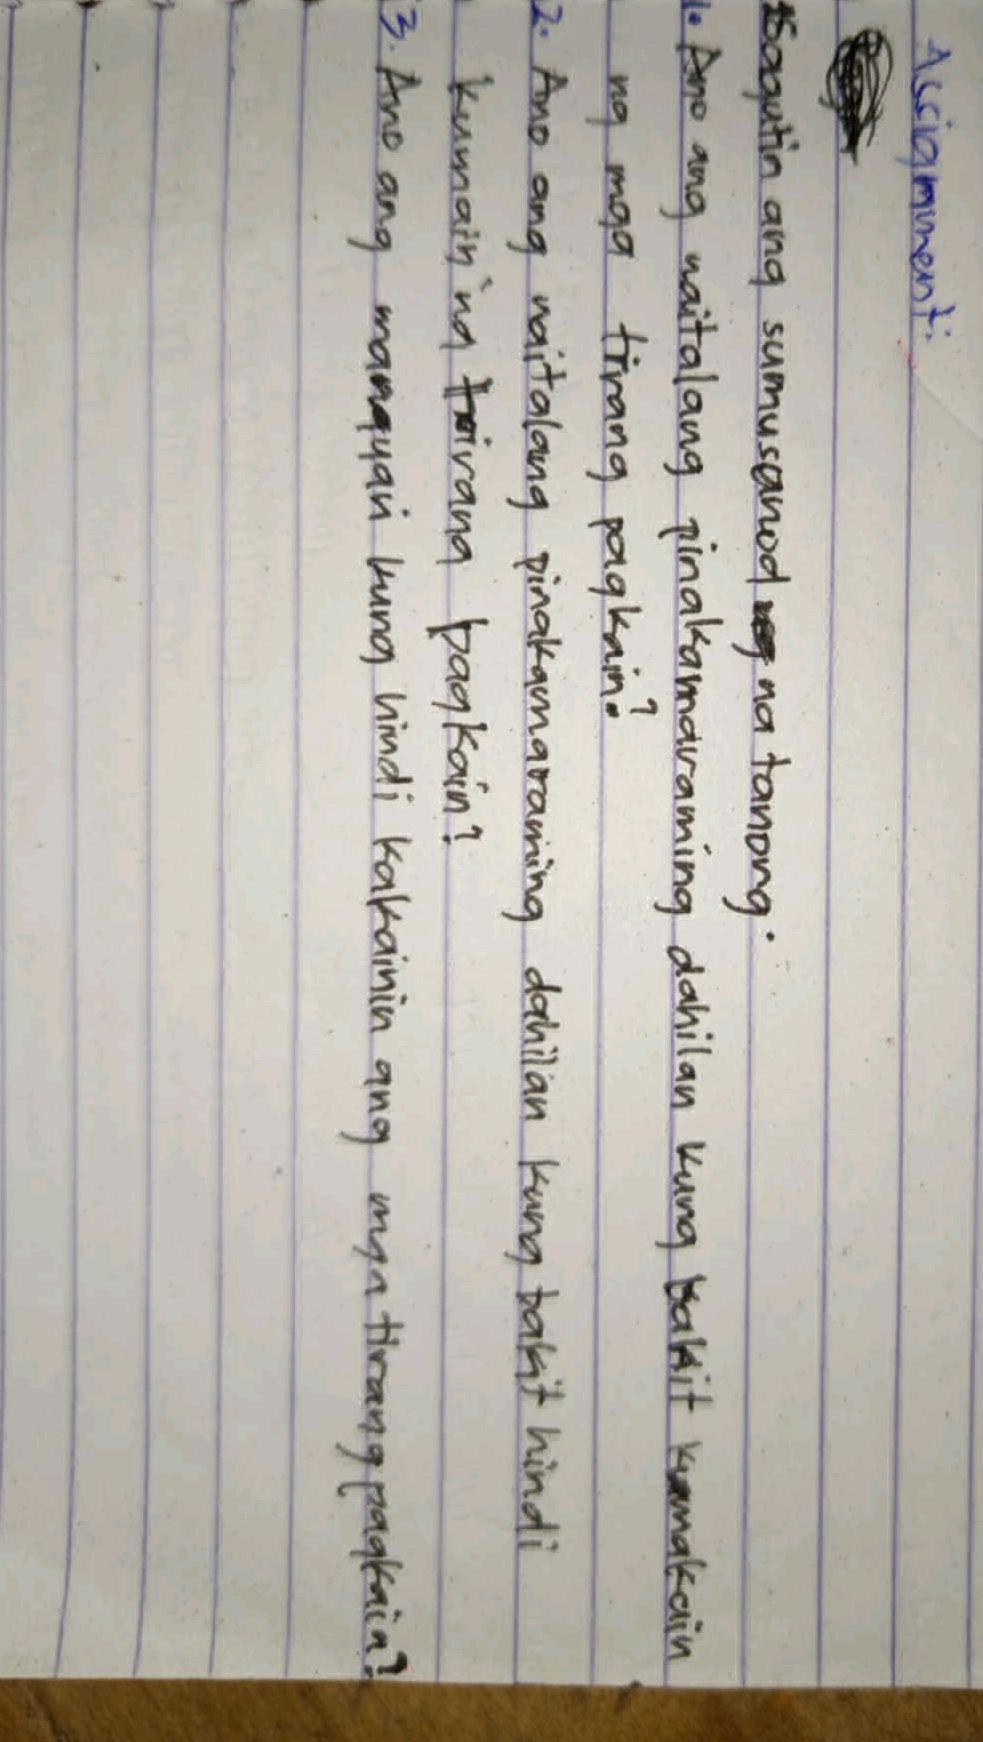 Assignment:
Sagutin ang sumusunod na tanong.
1. Ano ang naitalang pinakamaraming dahilan kung bakit kumakain
ng mga tirang pagkain?
2. Ano ang naitalang pinakamaraming dahilan kung bakit hindi
kumain ng tirang pagkain?
3. Ano ang mangyari kung hindi kakainin ang mga tirang pagkain?